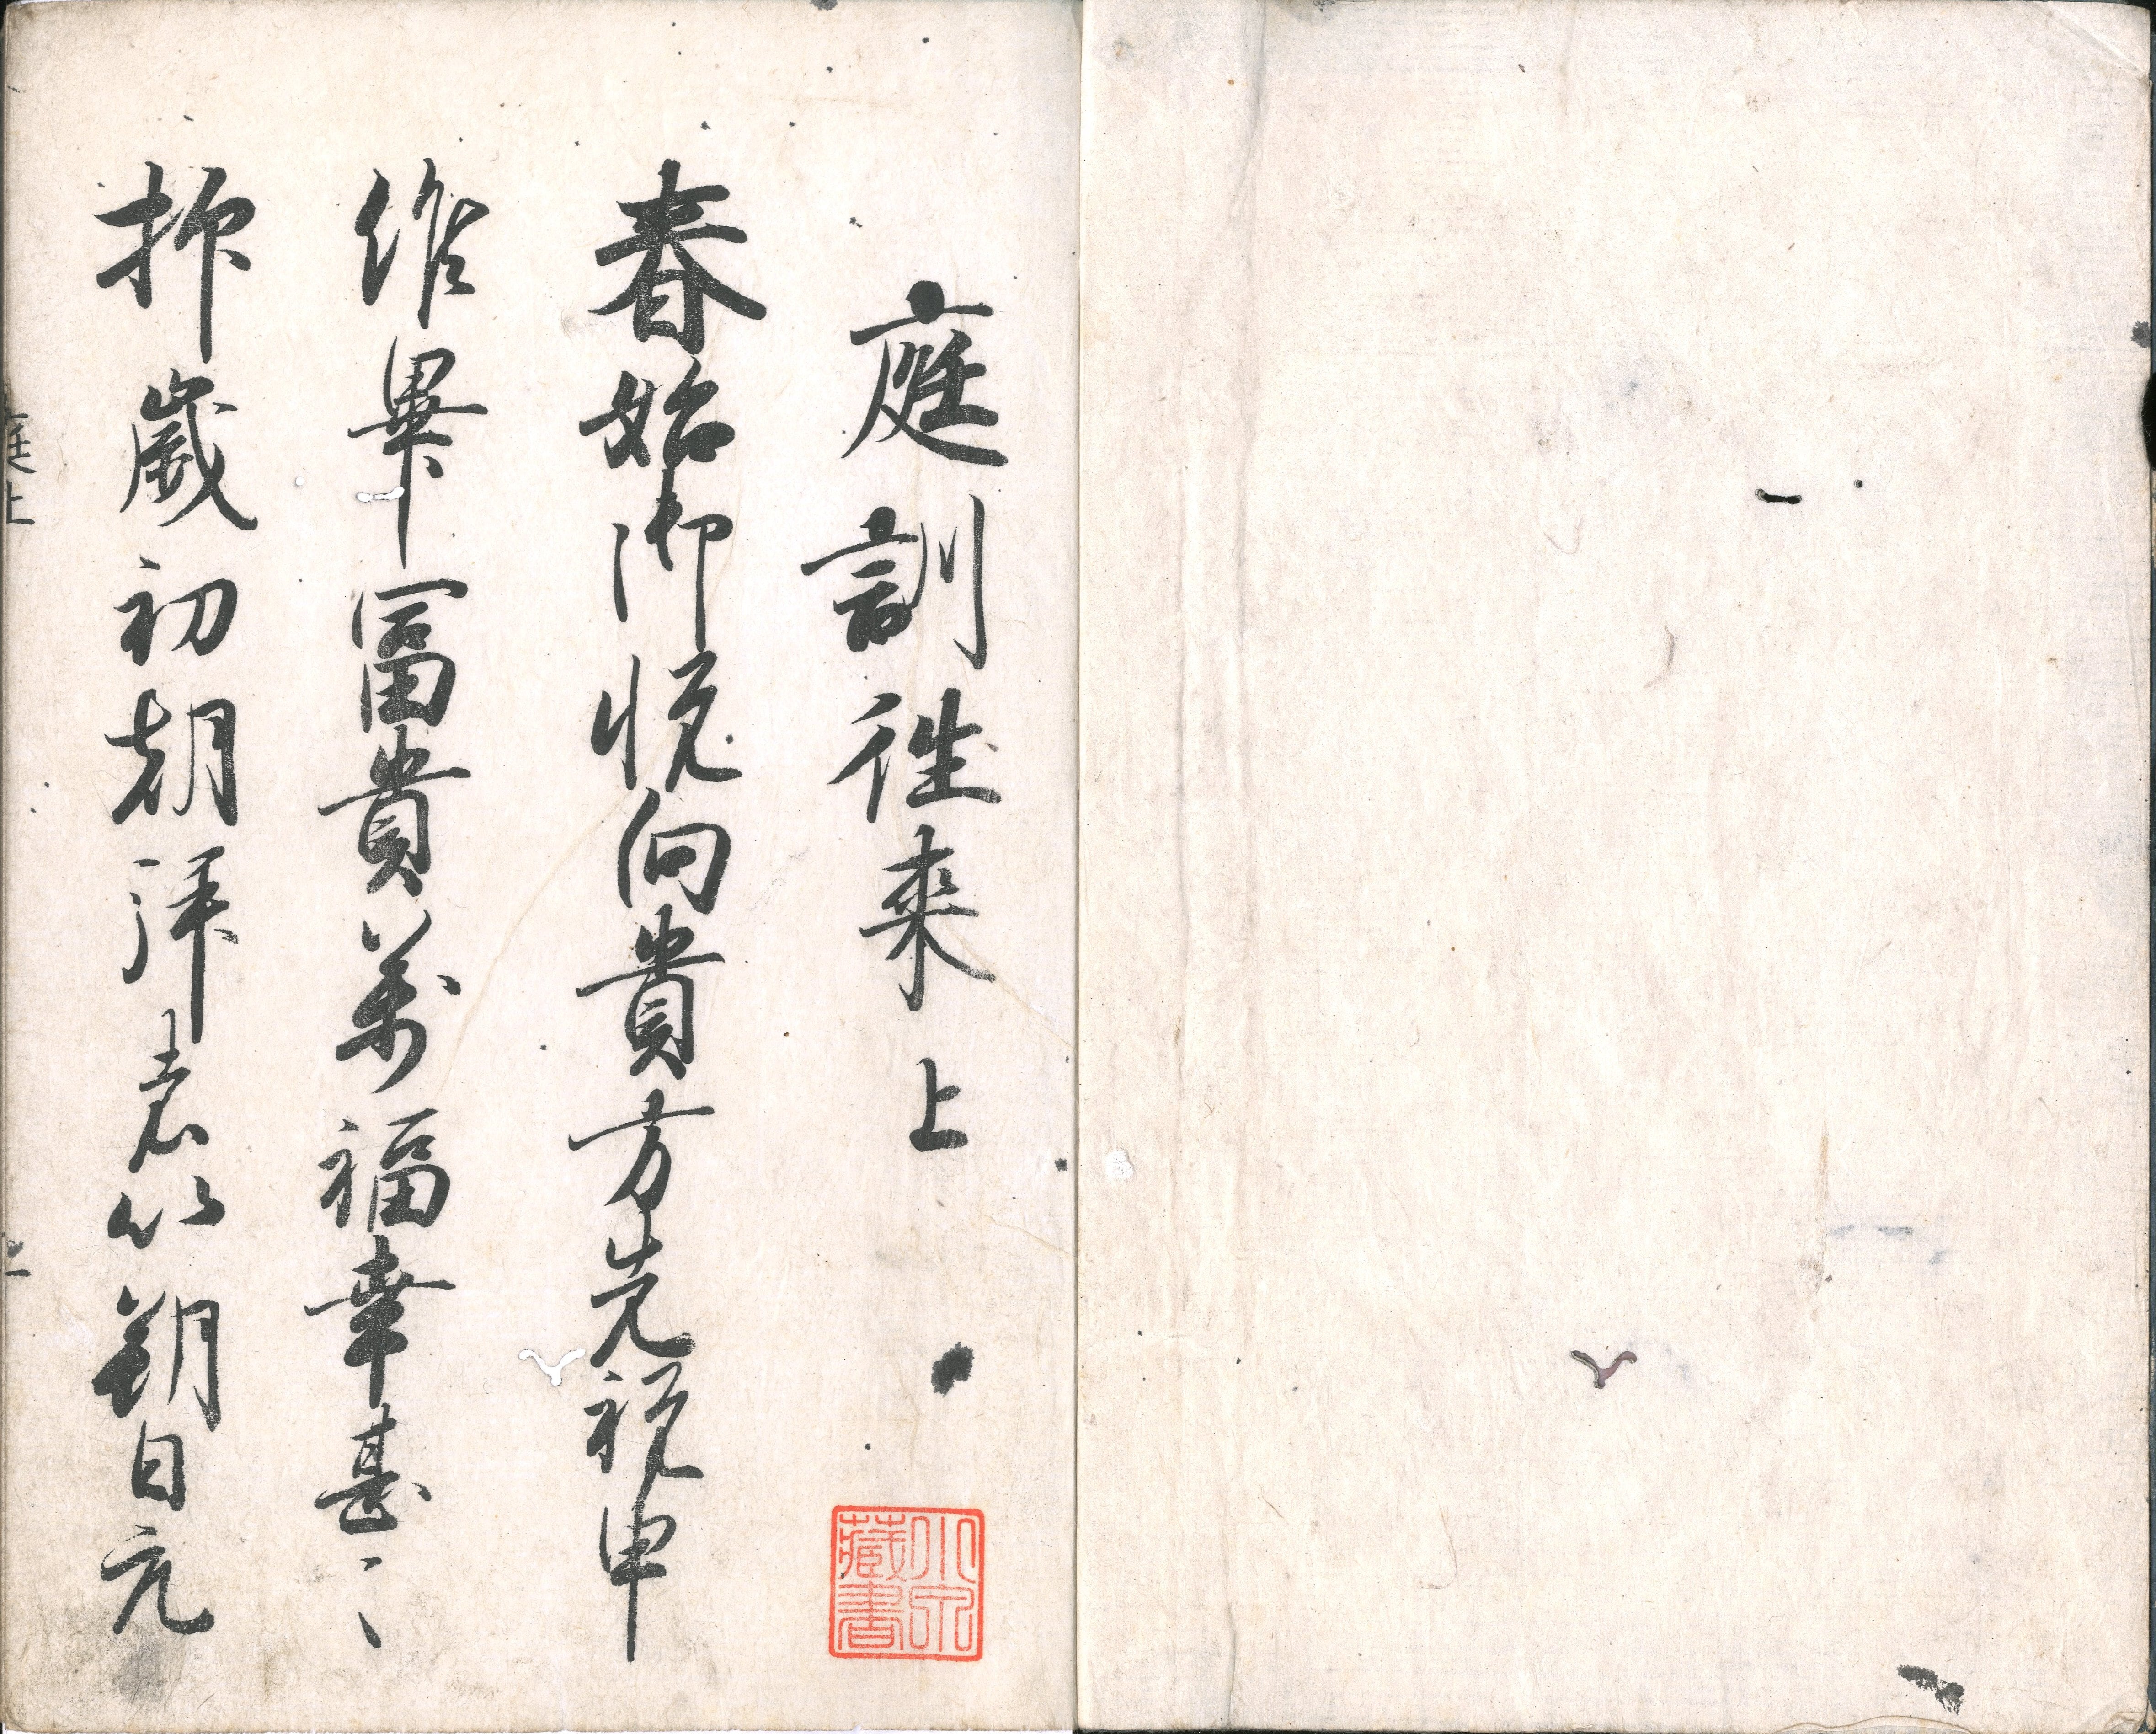 庭訓徃来上
春始御悦向貴方先祝申
候畢冨貴萬福幸甚〻
抑歳初朝拝者以朔日元
庭上
一
藏書